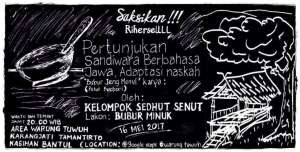 Saksikan !!!
Rihersellll
Pertunjukan
Sandiwara Berbahasa
Jawa, Adaptasi naskah
"Bubur Jeng Menul" karya :
Oleh:
KELOMPOK SEDHUT SENUT
Lakon: BUBUR MINUK
16 MEI 2017
WAKTU DAN TEMPAT
JAM: 20.00 WIB
AREA WARUNG TUWUH
KARANGJATI TAMANTIRTO
KASIHAN BANTUL (LOCATION: @google maps @warung tuwuh)